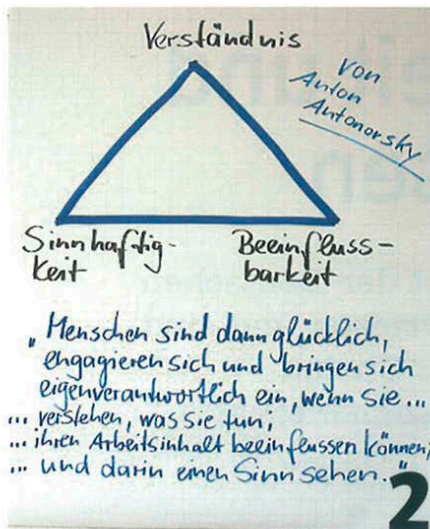 Verständnis
von
Anton
Antonorsky
Sinnhaftig-
keit
Beeinfluss-
barkeit
„Menschen sind dann glücklich,
engagieren sich und bringen sich
eigenverantwortlich ein, wenn sie...
... verstehen, was sie tun;
... ihren Arbeitsinhalt beeinflussen können;
... und darin einen Sinn sehen."
2